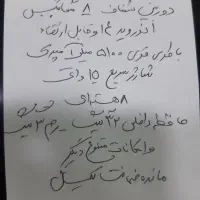 دوربین شفاف ۸ مگاپیکسل
اندروید ۱۴ و قابل ارتقاء
باطری قوی ۵۱۰۰ میلی آمپری
شارژر سریع ۱۵ واتی
۸ هسته‌ای
حافظه داخلی ۳۲ گیگ رم ۳ گیگ
و امکانات متنوع دیگر
مانده ضمانت یکسال